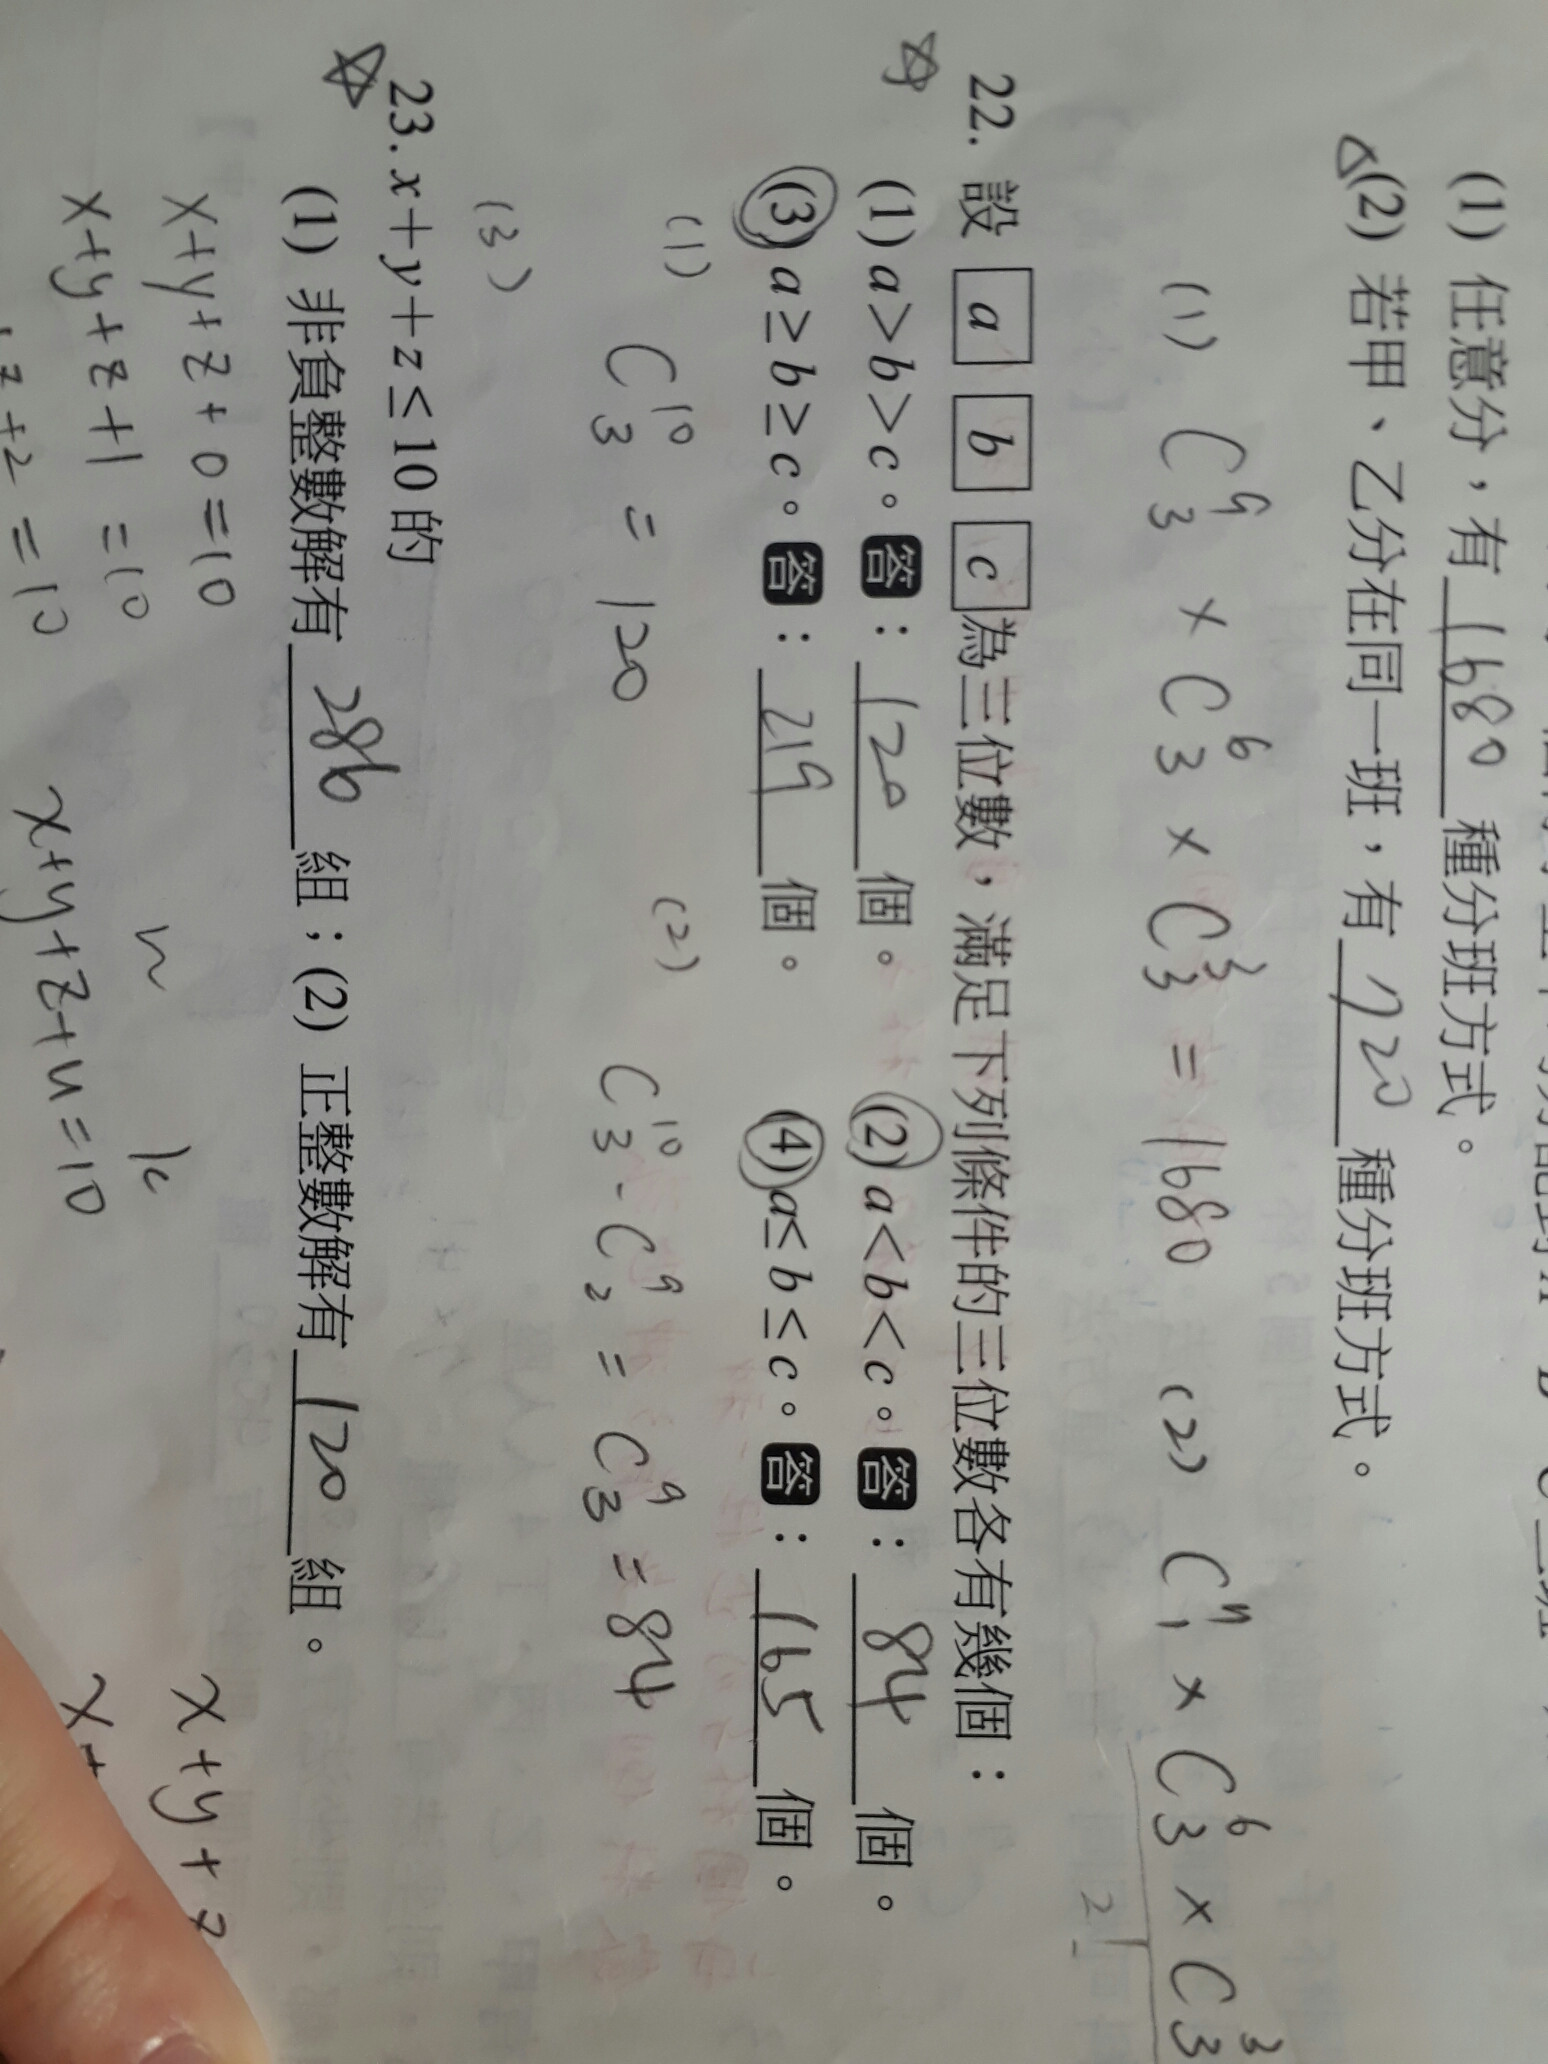 (1) 任意分，有 1680 種分班方式。
(2) 若甲、乙分在同一班，有 720 種分班方式。
(1) C⁹₃ × C⁶₃ × C³₃ = 1680 (2) C⁷₁ × C⁶₃ × C³₃
22. 設 a b c 為三位數，滿足下列條件的三位數各有幾個：
(1) a > b > c。答：120 個。 (2) a < b < c。答：84 個。
(3) a ≥ b ≥ c。答：219 個。 (4) a ≤ b ≤ c。答：165 個。
(1) C¹⁰₃ = 120 (2) C¹⁰₃ - C⁹₂ = C⁹₃ = 84
(3)
23. x + y + z ≤ 10 的
(1) 非負整數解有 286 組；(2) 正整數解有 120 組。
x+y+z+0=10 x+y+z
x+y+z+1=10 x+y+z+u=10 x+
z+2=10